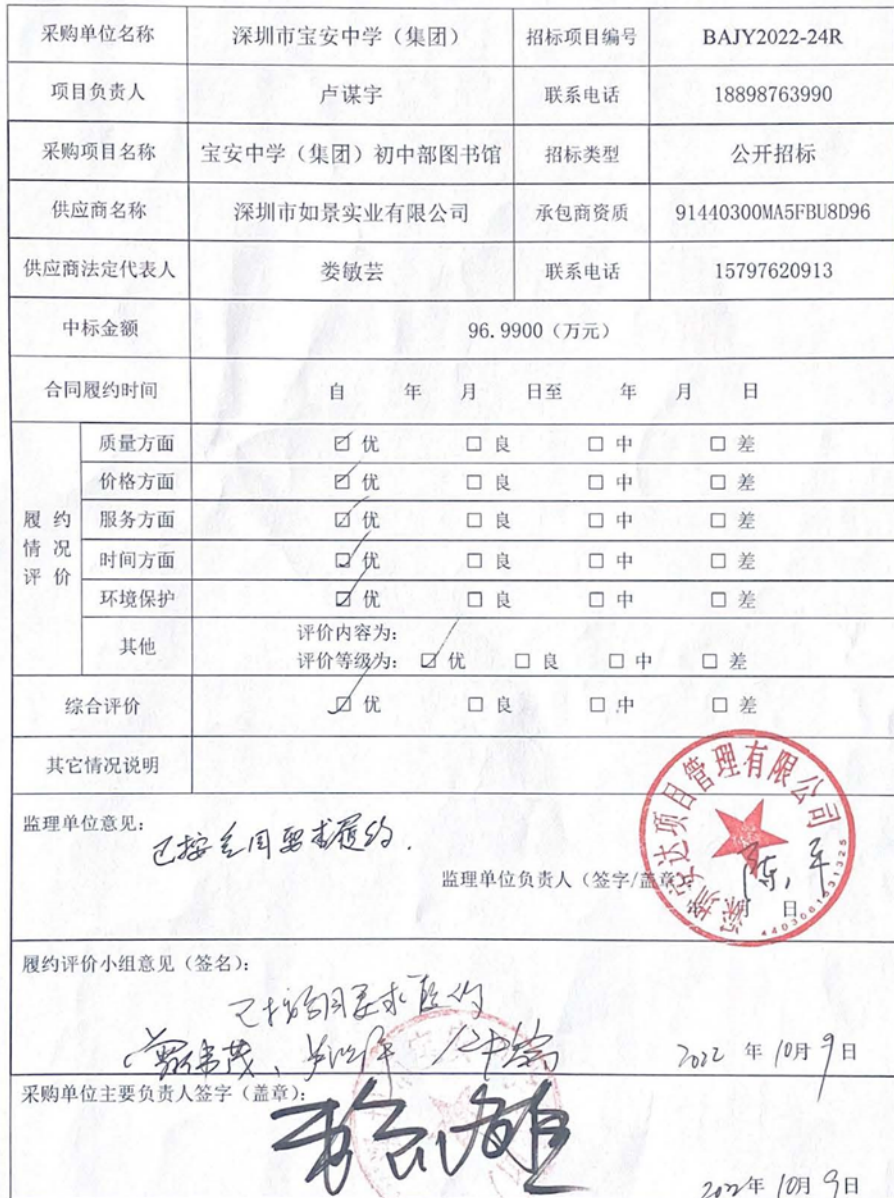 采购单位名称 深圳市宝安中学（集团） 招标项目编号 BAJY2022-24R
项目负责人 卢谋宇 联系电话 18898763990
采购项目名称 宝安中学（集团）初中部图书馆 招标类型 公开招标
供应商名称 深圳市如景实业有限公司 承包商资质 91440300MA5FBU8D96
供应商法定代表人 娄敏芸 联系电话 15797620913
中标金额 96.9900（万元）
合同履约时间 自 年 月 日至 年 月 日
履约情况评价
质量方面 ☑优 □良 □中 □差
价格方面 ☑优 □良 □中 □差
服务方面 ☑优 □良 □中 □差
时间方面 ☑优 □良 □中 □差
环境保护 ☑优 □良 □中 □差
其他 评价内容为：
评价等级为： ☑优 □良 □中 □差
综合评价 ☑优 □良 □中 □差
其它情况说明
监理单位意见：
已按合同要求履约.
监理单位负责人（签字/盖章）
月 日
项目管理有限公司
履约评价小组意见（签名）：
已按合同要求履约
2022 年 10月 9日
采购单位主要负责人签字（盖章）：
2022年 10月 9日